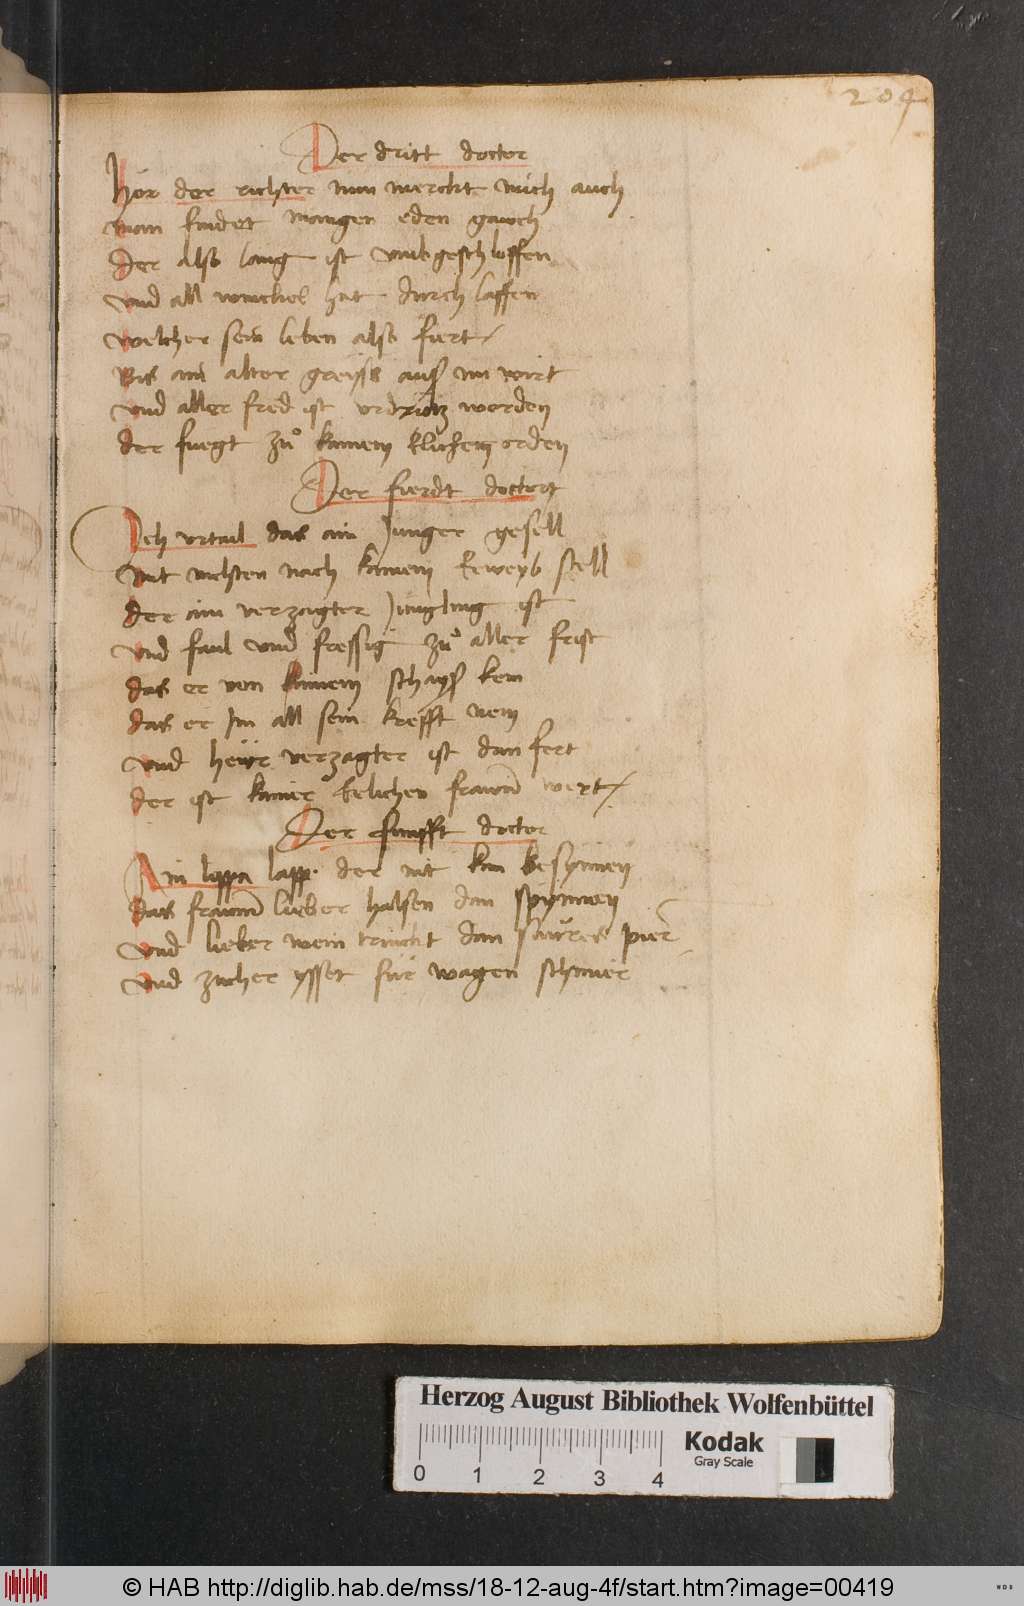 204
Der dritt doctor
Hör der richter nun merckt mich auch
man findet mangen eden gauch
der also lang ist umbgeschloffen
und all winckel hat durch laffen
welcher sein leben also fiert
Bis ain alter greyss aus im wirt
und aller fred ist urdrutz worden
der fuegt zů kainem elichem orden
Der fierdt doctor
Ich urtail das ain Junger gesell
mit nichten nach kainem Eeweyb stell
der ain verzagter Jungling ist
und faul und fressig zů aller frist
das er von kainem schayss kem
das er Im all sein krefft nem
und heür verzagter ist dan fert
der ist kainer Eelichen frawen wert
Der funfft doctor
Ain lappa lapp der nit kan besynnen
das frawen lieber halsen dan spynnen
und lieber wein trinckt dan saures pier
und zucker ysset für wagen schmir
Herzog August Bibliothek Wolfenbüttel
Kodak
Gray Scale
0 1 2 3 4
© HAB http://diglib.hab.de/mss/18-12-aug-4f/start.htm?image=00419